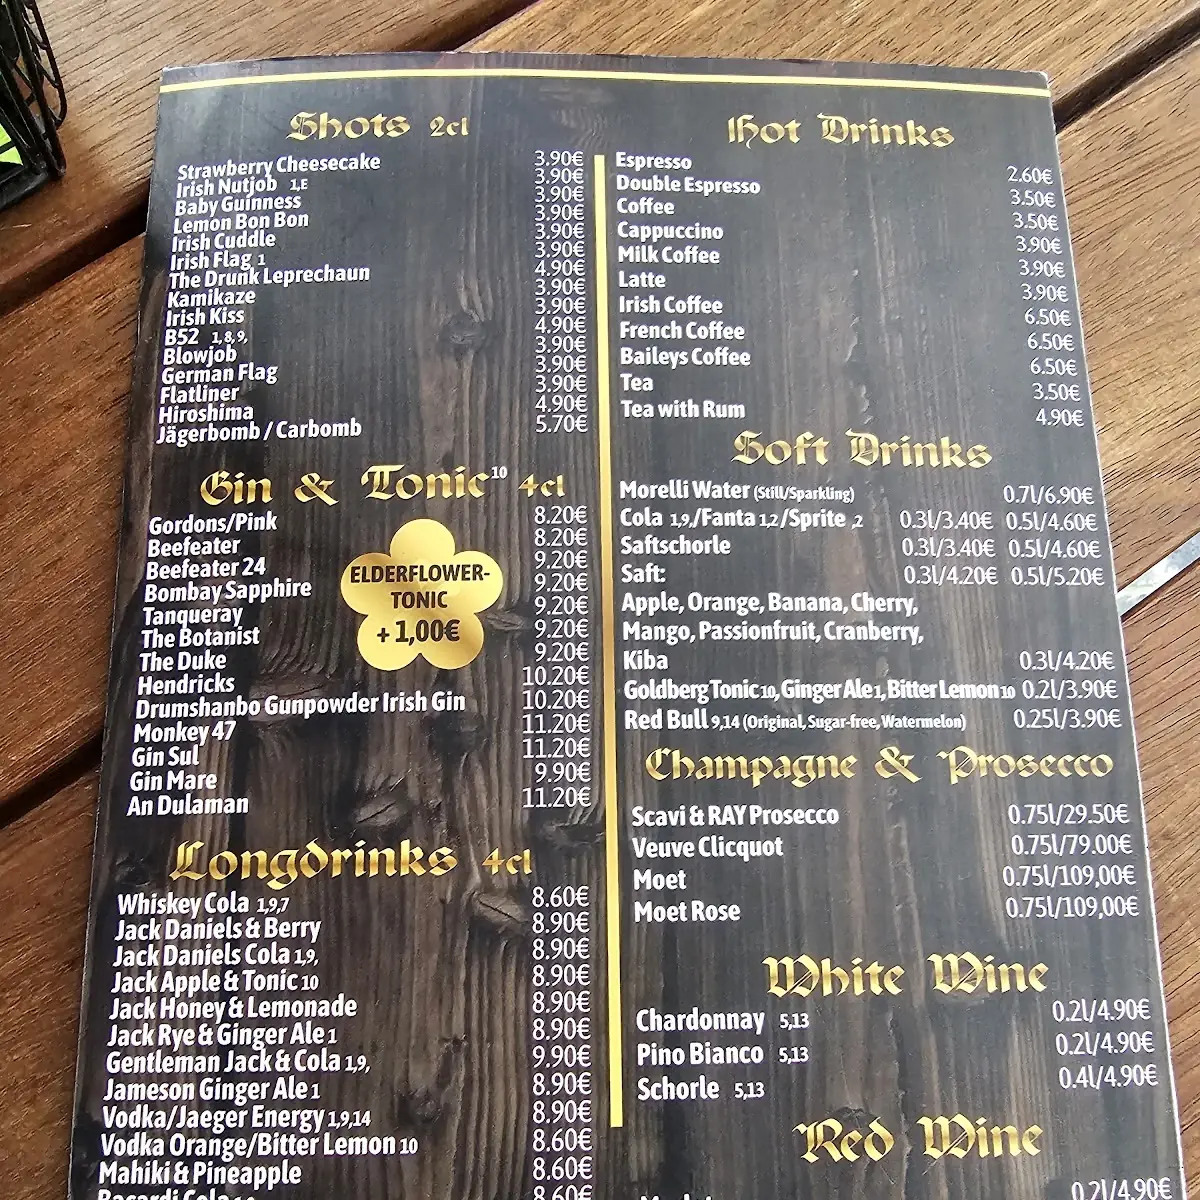 Shots 2cl
Strawberry Cheesecake 3.90€
Irish Nutjob 1,E 3.90€
Baby Guinness 3.90€
Lemon Bon Bon 3.90€
Irish Cuddle 3.90€
Irish Flag 1 3.90€
The Drunk Leprechaun 4.90€
Kamikaze 3.90€
Irish Kiss 3.90€
B52 1,8,9, 4.90€
Blowjob 3.90€
German Flag 3.90€
Flatliner 3.90€
Hiroshima 4.90€
Jägerbomb / Carbomb 5.70€
Gin & Tonic 10 4cl
Gordons/Pink 8.20€
Beefeater 8.20€
Beefeater 24 9.20€
Bombay Sapphire 9.20€
Tanqueray 9.20€
The Botanist 9.20€
The Duke 9.20€
Hendricks 10.20€
Drumshanbo Gunpowder Irish Gin 10.20€
Monkey 47 11.20€
Gin Sul 11.20€
Gin Mare 9.90€
An Dulaman 11.20€
ELDERFLOWER-
TONIC
+ 1,00€
Longdrinks 4cl
Whiskey Cola 1,9,7 8.60€
Jack Daniels & Berry 8.90€
Jack Daniels Cola 1,9, 8.90€
Jack Apple & Tonic 10 8.90€
Jack Honey & Lemonade 8.90€
Jack Rye & Ginger Ale 1 8.90€
Gentleman Jack & Cola 1,9, 9.90€
Jameson Ginger Ale 1 8.90€
Vodka/Jaeger Energy 1,9,14 8.90€
Vodka Orange/Bitter Lemon 10 8.60€
Mahiki & Pineapple 8.60€
Bacardi Cola 8.60€
Hot Drinks
Espresso 2.60€
Double Espresso 3.50€
Coffee 3.50€
Cappuccino 3.90€
Milk Coffee 3.90€
Latte 3.90€
Irish Coffee 6.50€
French Coffee 6.50€
Baileys Coffee 6.50€
Tea 3.50€
Tea with Rum 4.90€
Soft Drinks
Morelli Water (Still/Sparkling) 0.7l/6.90€
Cola 1,9,/Fanta 1,2/Sprite ,2 0.3l/3.40€ 0.5l/4.60€
Saftschorle 0.3l/3.40€ 0.5l/4.60€
Saft: 0.3l/4.20€ 0.5l/5.20€
Apple, Orange, Banana, Cherry,
Mango, Passionfruit, Cranberry,
Kiba 0.3l/4.20€
Goldberg Tonic 10, Ginger Ale 1, Bitter Lemon 10 0.2l/3.90€
Red Bull 9,14 (Original, Sugar-free, Watermelon) 0.25l/3.90€
Champagne & Prosecco
Scavi & RAY Prosecco 0.75l/29.50€
Veuve Clicquot 0.75l/79.00€
Moet 0.75l/109,00€
Moet Rose 0.75l/109,00€
White Wine
Chardonnay 5,13 0.2l/4.90€
Pino Bianco 5,13 0.2l/4.90€
Schorle 5,13 0.4l/4.90€
Red Wine
0.2l/4.90€